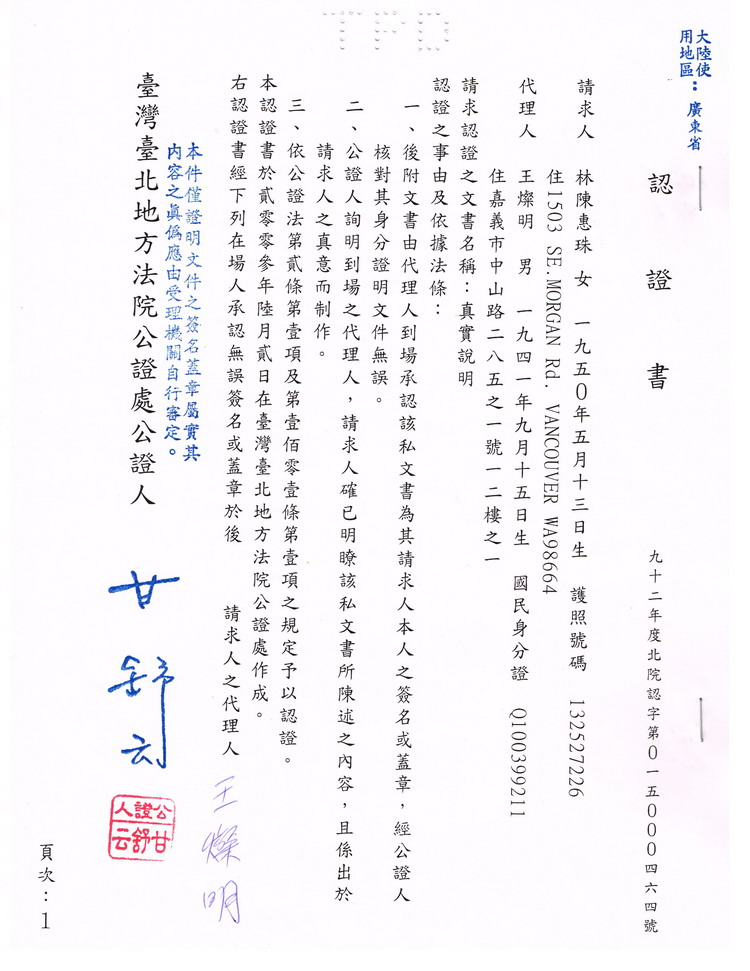 大陸使
用地區：廣東省
認證書
九十二年度北院認字第0一五000四六四號
請求人　林陳惠珠　女　一九五0年五月十三日生　護照號碼　132527226
住1503 SE.MORGAN Rd. VANCOUVER WA98664
代理人　王燦明　男　一九四一年九月十五日生　國民身分證　Q100399211
住嘉義市中山路二八五之一號一二樓之一
請求認證之文書名稱：真實說明
認證之事由及依據法條：
一、後附文書由代理人到場承認該私文書為其請求人本人之簽名或蓋章，經公證人
核對其身分證明文件無誤。
二、公證人詢明到場之代理人，請求人確已明瞭該私文書所陳述之內容，且係出於
請求人之真意而制作。
三、依公證法第貳條第壹項及第壹佰零壹條第壹項之規定予以認證。
本認證書於貳零零參年陸月貳日在臺灣臺北地方法院公證處作成。
右認證書經下列在場人承認無誤簽名或蓋章於後　請求人之代理人　王燦明
本件僅證明文件之簽名蓋章屬實其
內容之眞僞應由受理機關自行審定。
臺灣臺北地方法院公證處公證人　甘舒云
公證人
甘舒云
頁次：1